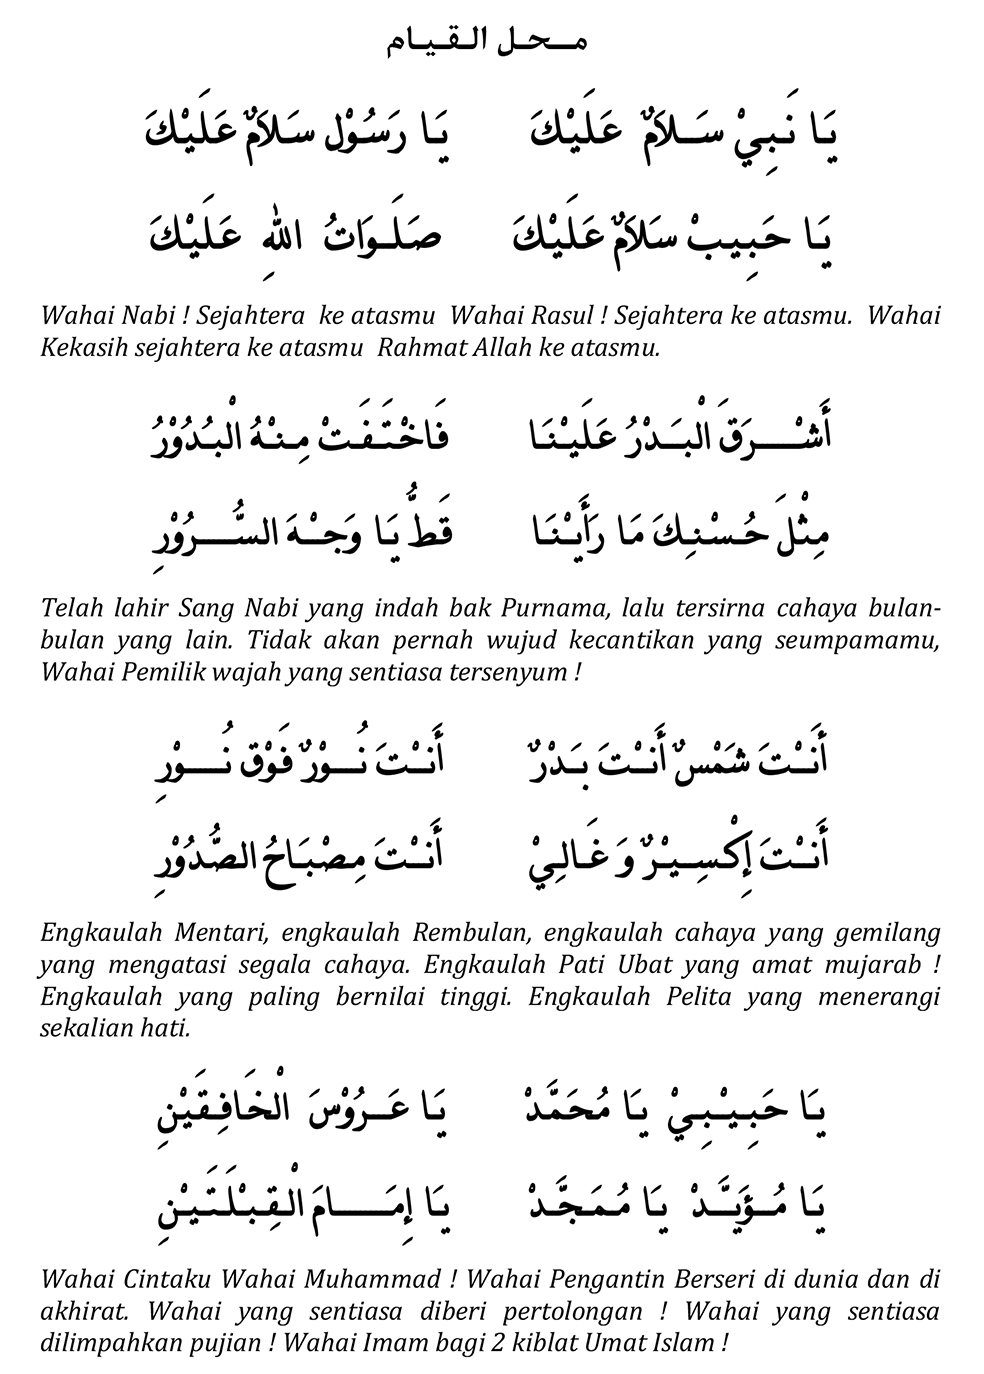 محل القيام
يَا نَبِيْ سَلاَمٌ عَلَيْكَ يَا رَسُوْل سَلاَمٌ عَلَيْكَ
يَا حَبِيبْ سَلاَمٌ عَلَيْكَ صَلَوَاتُ اللهِ عَلَيْكَ
Wahai Nabi ! Sejahtera ke atasmu Wahai Rasul ! Sejahtera ke atasmu. Wahai
Kekasih sejahtera ke atasmu Rahmat Allah ke atasmu.
أَشْرَقَ الْبَدْرُ عَلَيْنَا فَاخْتَفَتْ مِنْهُ الْبُدُوْرُ
مِثْلَ حُسْنِكَ مَا رَأَيْنَا قَطُّ يَا وَجْهَ السُّرُوْرِ
Telah lahir Sang Nabi yang indah bak Purnama, lalu tersirna cahaya bulan-
bulan yang lain. Tidak akan pernah wujud kecantikan yang seumpamamu,
Wahai Pemilik wajah yang sentiasa tersenyum !
أَنْتَ شَمْسٌ أَنْتَ بَدْرٌ أَنْتَ نُوْرٌ فَوْق نُوْرِ
أَنْتَ إِكْسِيْرٌ وَ غَالِيْ أَنْتَ مِصْبَاحُ الصُّدُوْرِ
Engkaulah Mentari, engkaulah Rembulan, engkaulah cahaya yang gemilang
yang mengatasi segala cahaya. Engkaulah Pati Ubat yang amat mujarab !
Engkaulah yang paling bernilai tinggi. Engkaulah Pelita yang menerangi
sekalian hati.
يَا حَبِيْبِيْ يَا مُحَمَّدْ يَا عَرُوْسَ الْخَافِقَيْنِ
يَا مُؤَيَّدْ يَا مُمَجَّدْ يَا إِمَامَ الْقِبْلَتَيْنِ
Wahai Cintaku Wahai Muhammad ! Wahai Pengantin Berseri di dunia dan di
akhirat. Wahai yang sentiasa diberi pertolongan ! Wahai yang sentiasa
dilimpahkan pujian ! Wahai Imam bagi 2 kiblat Umat Islam !